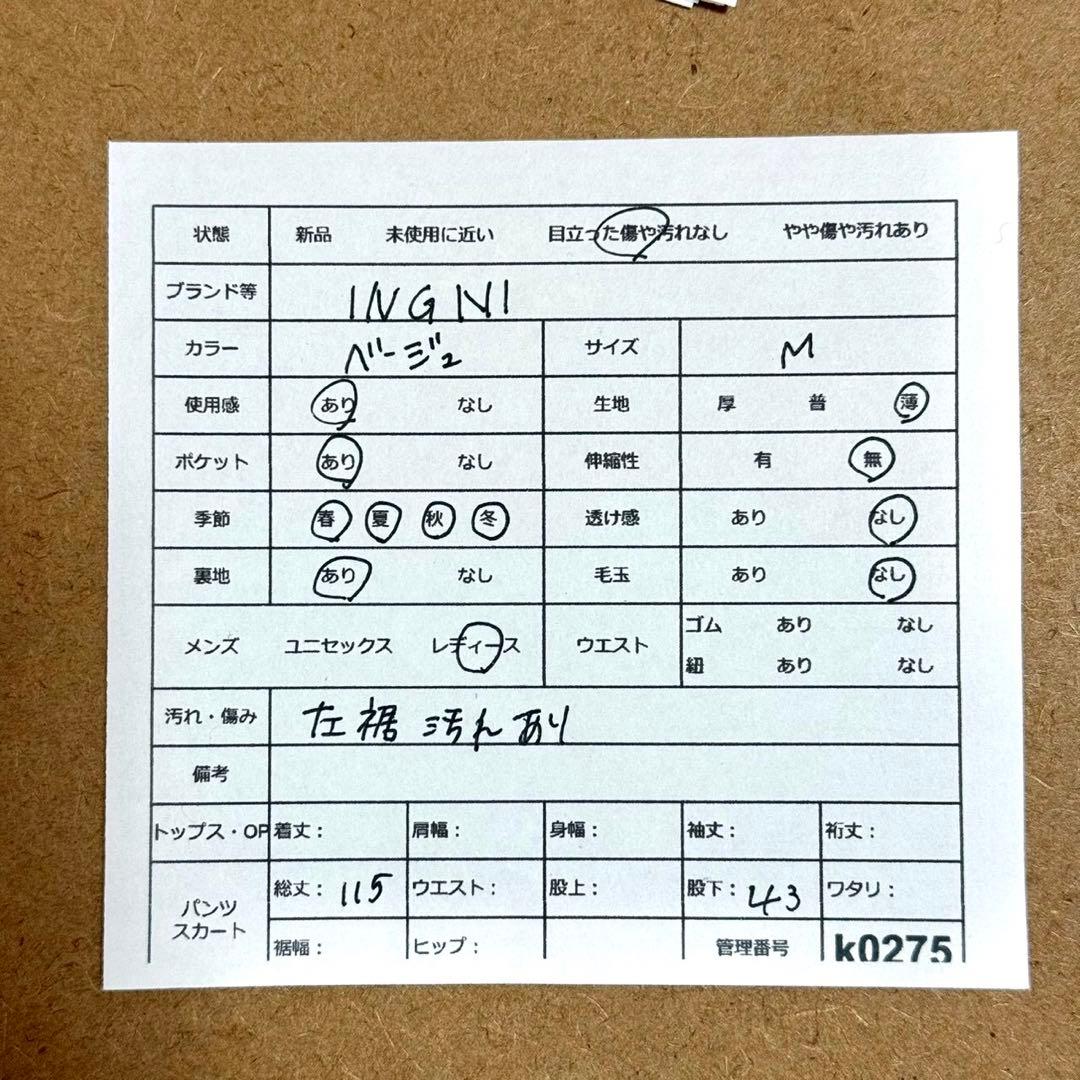 状態 新品 未使用に近い 目立った傷や汚れなし やや傷や汚れあり
ブランド等 INGNI
カラー ベージュ サイズ M
使用感 あり なし 生地 厚 普 薄
ポケット あり なし 伸縮性 有 無
季節 春 夏 秋 冬 透け感 あり なし
裏地 あり なし 毛玉 あり なし
メンズ ユニセックス レディース ウエスト ゴム あり なし
紐 あり なし
汚れ・傷み 左裾 汚れあり
備考
トップス・OP 着丈: 肩幅: 身幅: 袖丈: 裄丈:
パンツ スカート 総丈: 115 ウエスト: 股上: 股下: 43 ワタリ:
裾幅: ヒップ: 管理番号 k0275